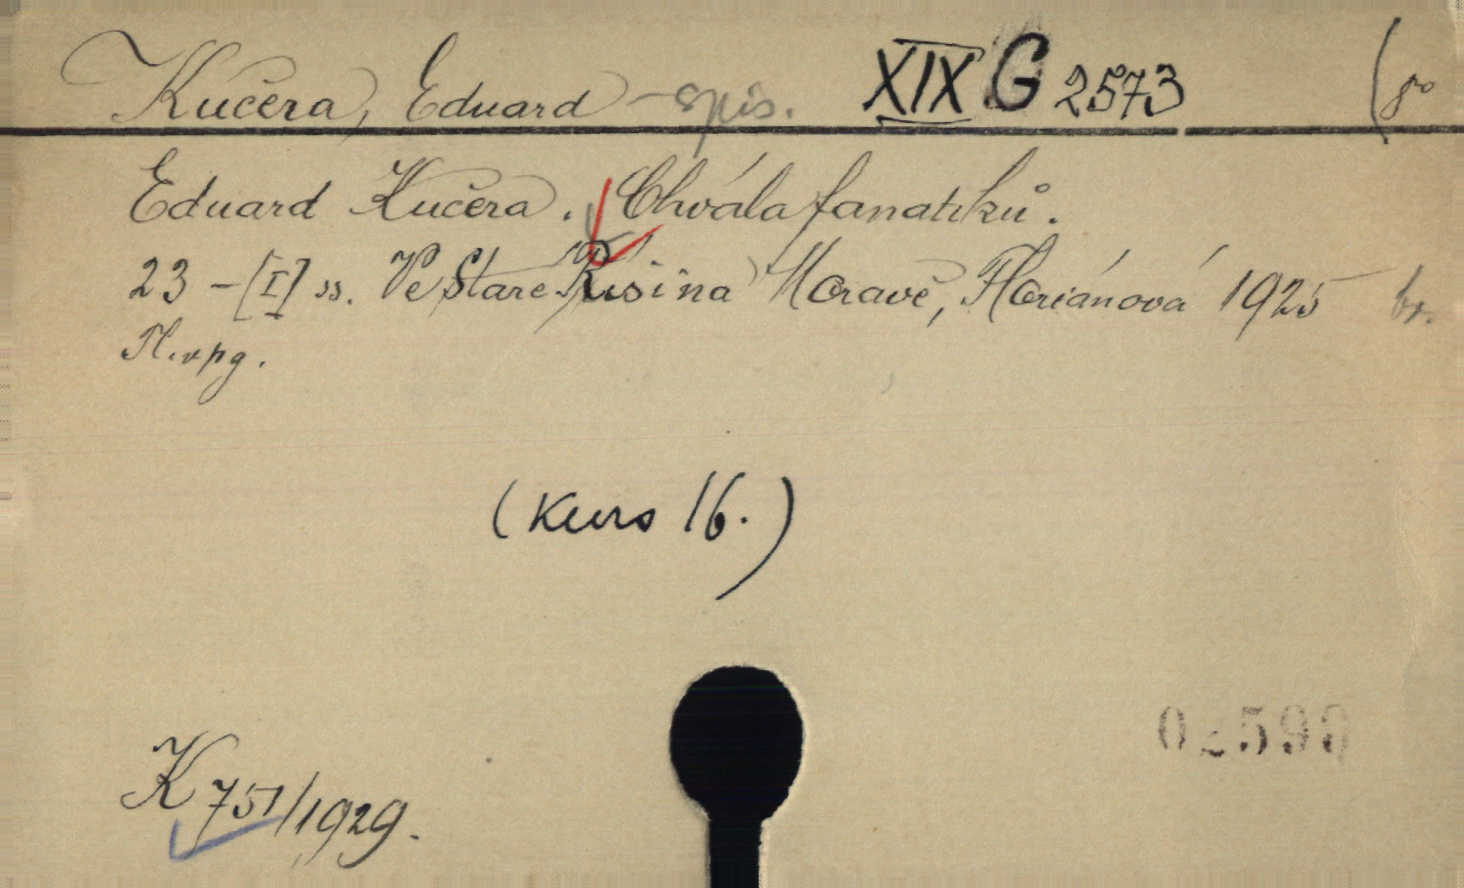 Kučera, Eduard - spis. XIX G 2573 (8°
Eduard Kučera. Chvála fanatiků.
23 - [I] ss. Ve Staré Říši na Moravě, Florianová 1925 br.
(Kurs 16.)
0259
K 751/1929.